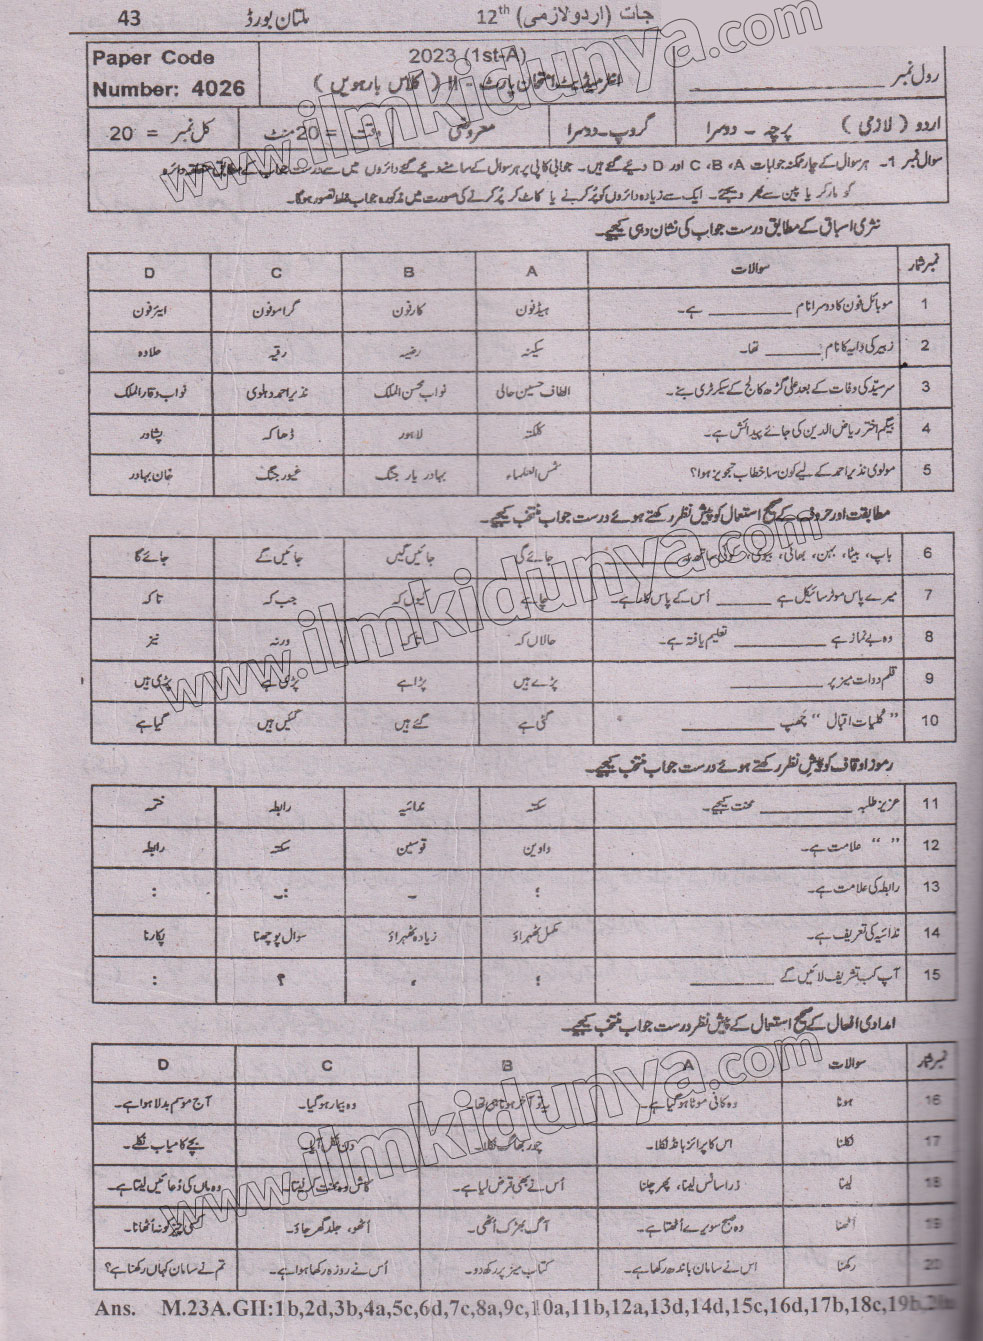 جات (اردو لازمی) 12th ملتان بورڈ 43
رول نمبر ____________ 2023 (1st-A) Paper Code
انٹرمیڈیٹ امتحان پارٹ - II (کلاس بارہویں) Number: 4026
اردو (لازمی) پرچہ - دوسرا گروپ - دوسرا معروضی وقت = 20 منٹ کل نمبر = 20
سوال نمبر 1- ہر سوال کے چار ممکنہ جوابات A، B، C اور D دیئے گئے ہیں۔ جوابی کاپی پر ہر سوال کے سامنے دیئے گئے دائروں میں سے درست جواب کے مطابق متعلقہ دائرہ
کو مارکر یا پین سے بھر دیجئے۔ ایک سے زیادہ دائروں کو پُر کرنے یا کاٹ کر پُر کرنے کی صورت میں مذکورہ جواب غلط تصور ہوگا۔
نثری اسباق کے مطابق درست جواب کی نشان دہی کیجیے۔
نمبر شمار سوالات A B C D
1 موبائل فون کا دوسرا نام ________ ہے۔ ہیڈ فون کار فون گراموفون ایئر فون
2 زبیر کی دایہ کا نام ______ تھا۔ سکینہ رضیہ رقیہ حلاوہ
3 سرسیّد کی وفات کے بعد علی گڑھ کالج کے سیکرٹری بنے۔ الطاف حسین حالی نواب محسن الملک نذیر احمد دہلوی نواب وقار الملک
4 بیگم اختر ریاض الدین کی جائے پیدائش ہے۔ کلکتہ لاہور ڈھاکہ پشاور
5 مولوی نذیر احمد کے لیے کون سا خطاب تجویز ہوا؟ شمس العلماء بہادر یار جنگ غیور جنگ خان بہادر
مطابقت اور حروف کے صحیح استعمال کو پیش نظر رکھتے ہوئے درست جواب منتخب کیجیے۔
6 باپ، بیٹا، بہن، بھائی، بیوی، کون ساتھ جائے گی جائیں گیں جائیں گے جائے گا
7 میرے پاس موٹر سائیکل ہے ______ اُس کے پاس کار ہے۔ چاہے کیوں کہ جب کہ تاکہ
8 وہ بے نماز ہے ______ تعلیم یافتہ ہے۔ حالاں کہ تاکہ ورنہ نیز
9 قلم دوات میز پر ________ پڑے ہیں پڑا ہے پڑی ہے پڑی ہیں
10 "کلیات اقبال" چھپ ________ گئی ہے گئے ہیں گئیں ہیں گیا ہے
رموز اوقاف کو پیشِ نظر رکھتے ہوئے درست جواب منتخب کیجیے۔
11 عزیز طلبہ ________ محنت کیجیے۔ سکتہ ندائیہ رابطہ ختمہ
12 " " علامت ہے۔ واوین قوسین سکتہ رابطہ
13 رابطہ کی علامت ہے۔ ؛ ۔ :۔ :
14 ندائیہ کی تعریف ہے۔ مکمل ٹھہراؤ زیادہ ٹھہراؤ سوال پوچھنا پکارنا
15 آپ کب تشریف لائیں گے ________ ؛ ، ؟ :
امدادی افعال کے صحیح استعمال کے پیش نظر درست جواب منتخب کیجیے۔
نمبر شمار سوالات A B C D
16 ہونا وہ کافی موٹا ہو گیا ہے۔ یہ تو آخر ہونا ہی تھا۔ وہ بیمار ہو گیا۔ آج موسم بدلا ہوا ہے۔
17 نکلنا اس کا پرائز بانڈ نکلا۔ چور بھاگ نکلا۔ دن نکل آیا۔ بچے کامیاب نکلے۔
18 لینا ذرا سانس لینا، پھر چلنا اُس نے بھی قرض لیا ہے۔ کاش وہ محنت کر لیتا۔ وہ ماں کی دُعائیں لیتا ہے۔
19 اُٹھنا وہ صبح سویرے اُٹھتا ہے۔ آگ بھڑک اُٹھی۔ اُٹھو، جلد گھر جاؤ۔ کسی چیز کو نہ اُٹھانا۔
20 رکھنا اس نے سامان باندھ رکھا ہے۔ کتاب میز پر رکھ دو۔ اُس نے روزہ رکھا ہوا ہے۔ تم نے سامان کہاں رکھنا ہے؟
Ans. M.23A.GII:1b,2d,3b,4a,5c,6d,7c,8a,9c,10a,11b,12a,13d,14d,15c,16d,17b,18c,19b,
www.ilmkidunya.com
www.ilmkidunya.com
www.ilmkidunya.com